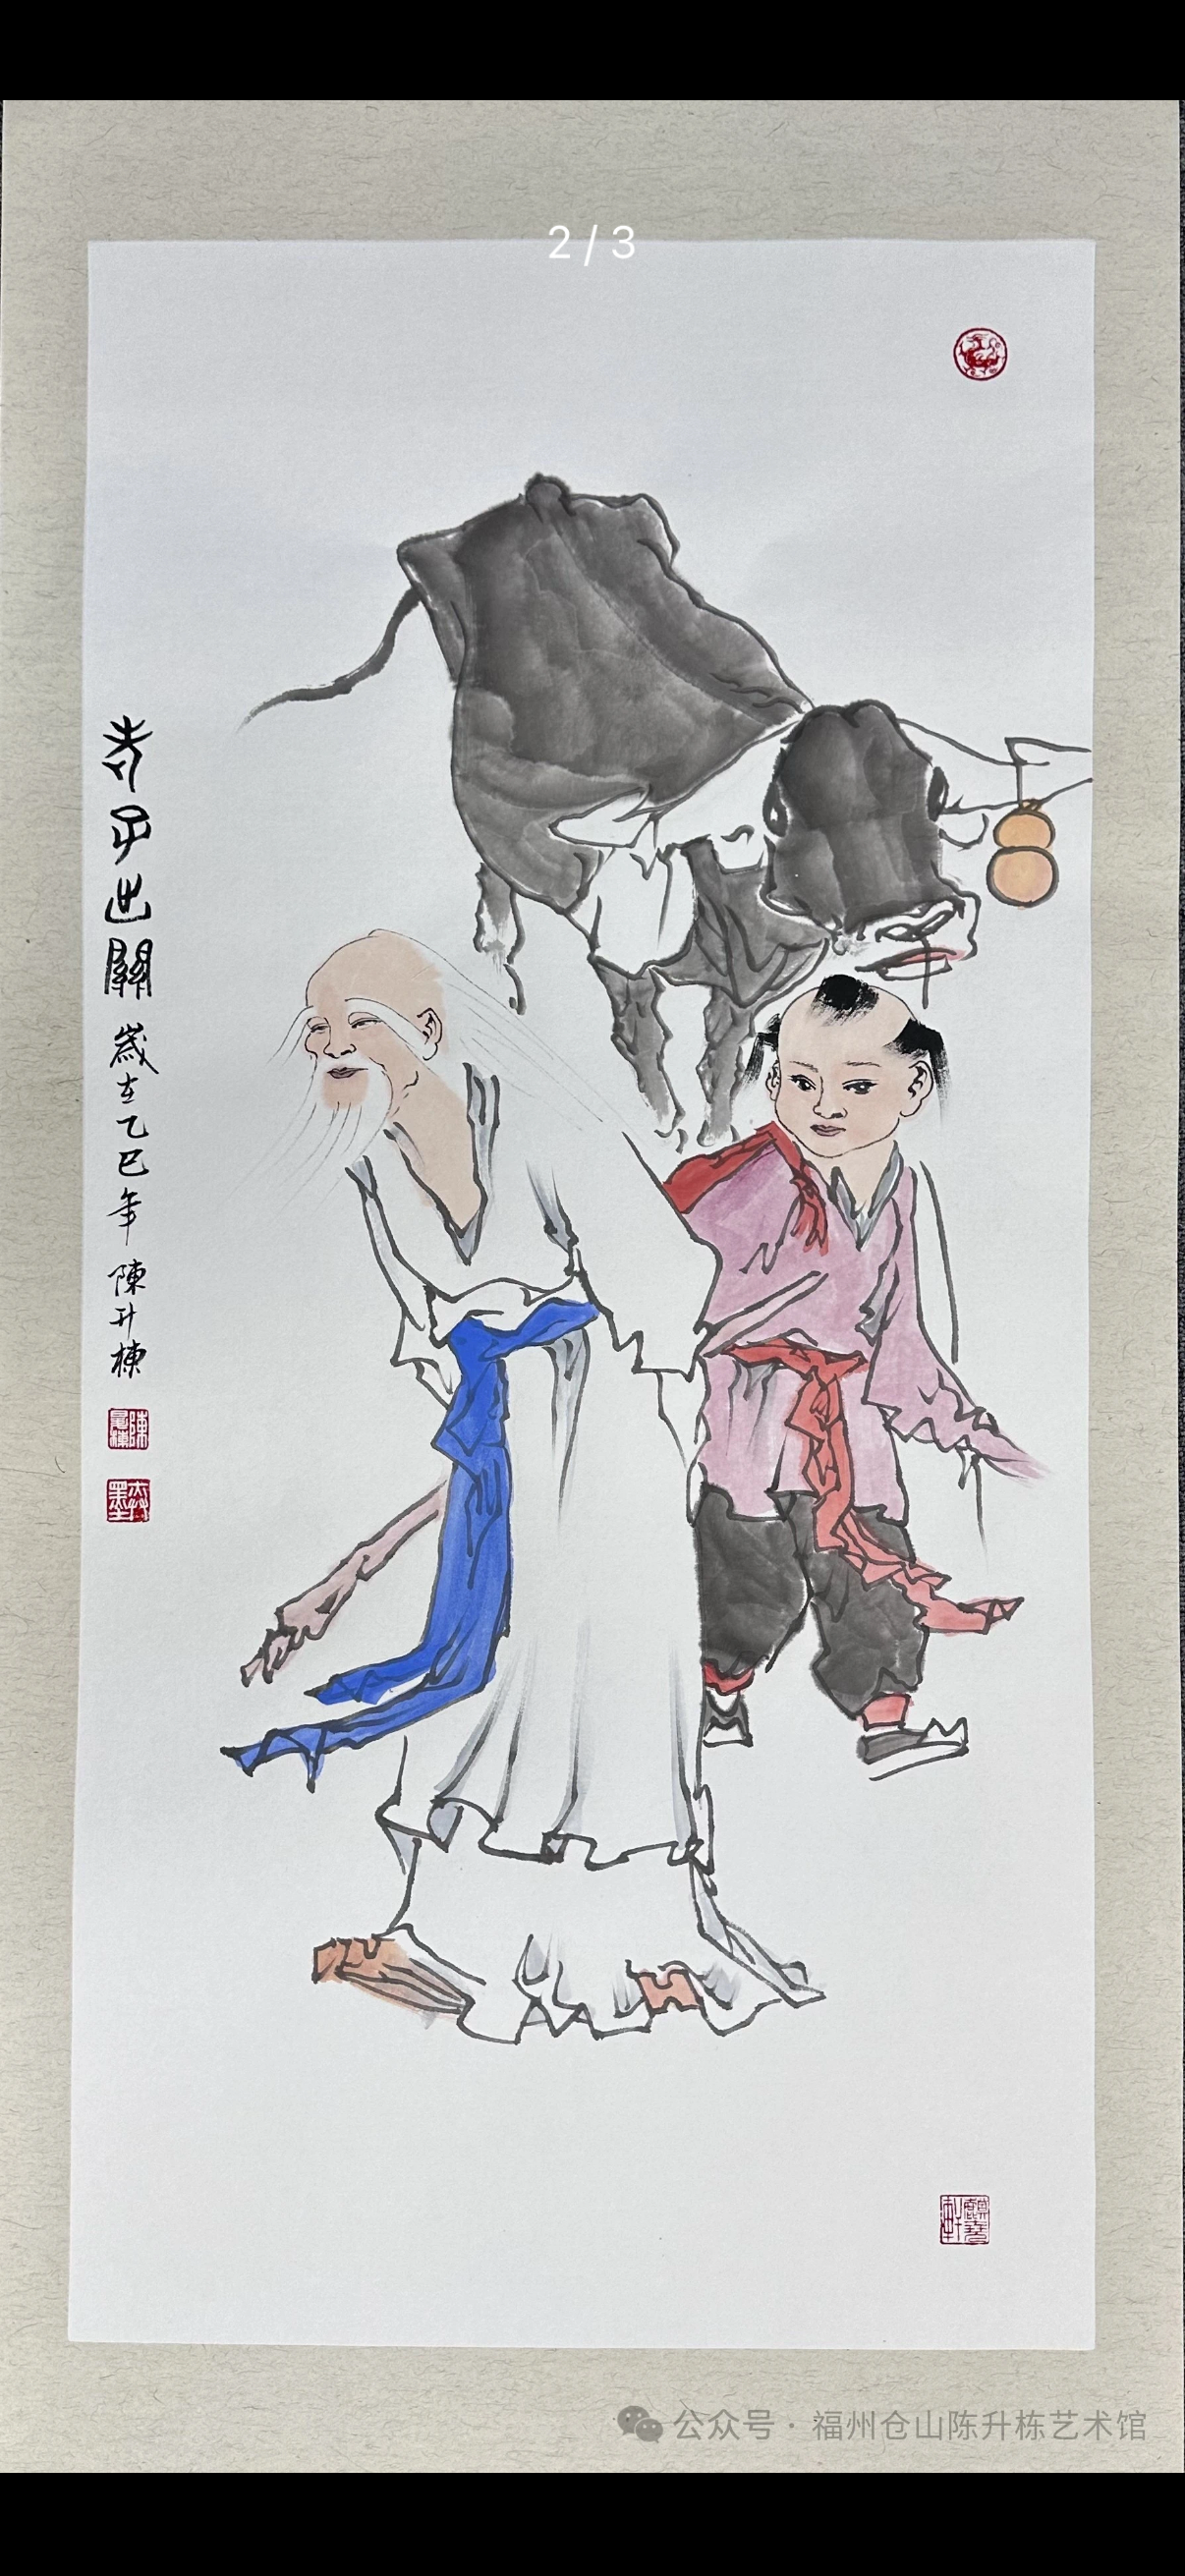 2 / 3
老子出關 歲在乙巳年 陳升棟
公众号 · 福州仓山陈升栋艺术馆